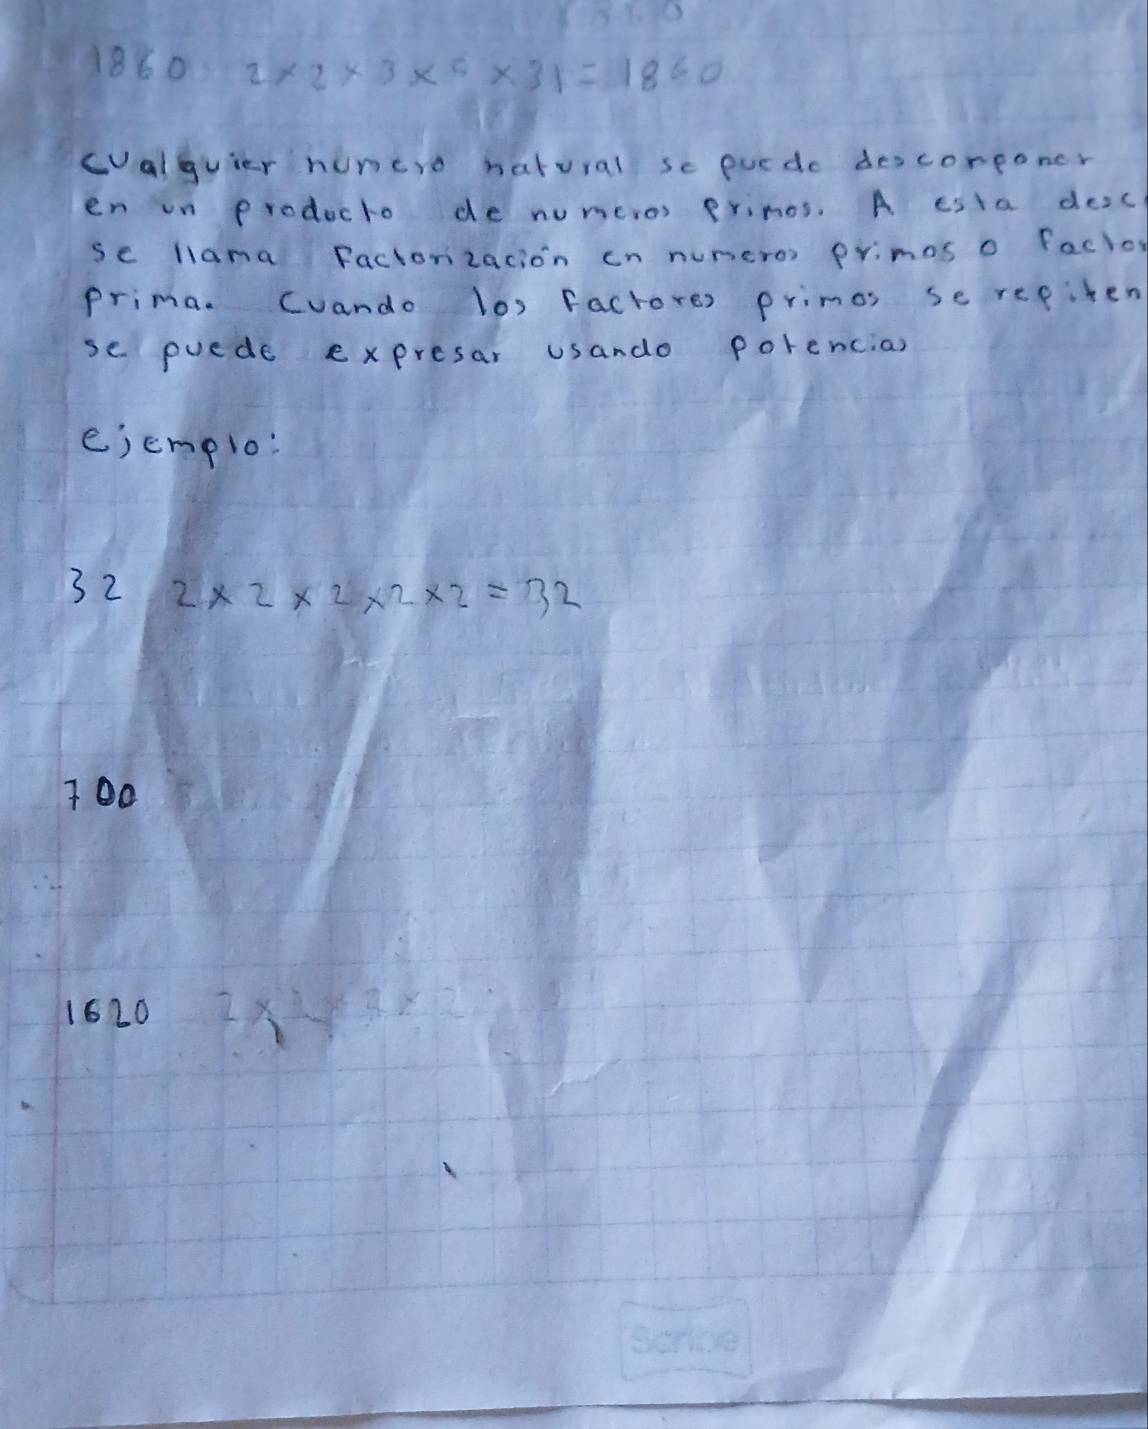 1860 2×2×3×5×31=1860
cualquier numero natural se puede descomponer
en un producto de numeros primos. A esta desc
se llama Factorización en numeros primos o factor
prima. Cuando los factores primos se repiten
se puede expresar usando potencias
ejemplo:
32 2×2×2×2×2=32
700
1620
Scribe